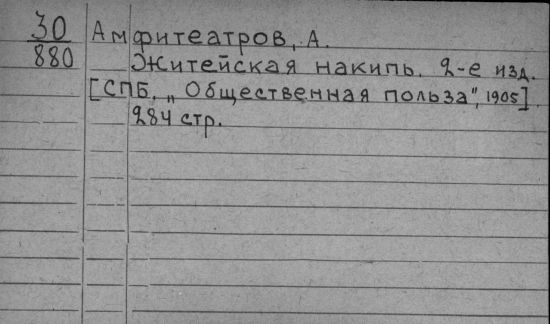 30 Амфитеатров, А.
880 Житейская накипь. 2-е изд.
[СПБ, „Общественная польза", 1905].
284 стр.